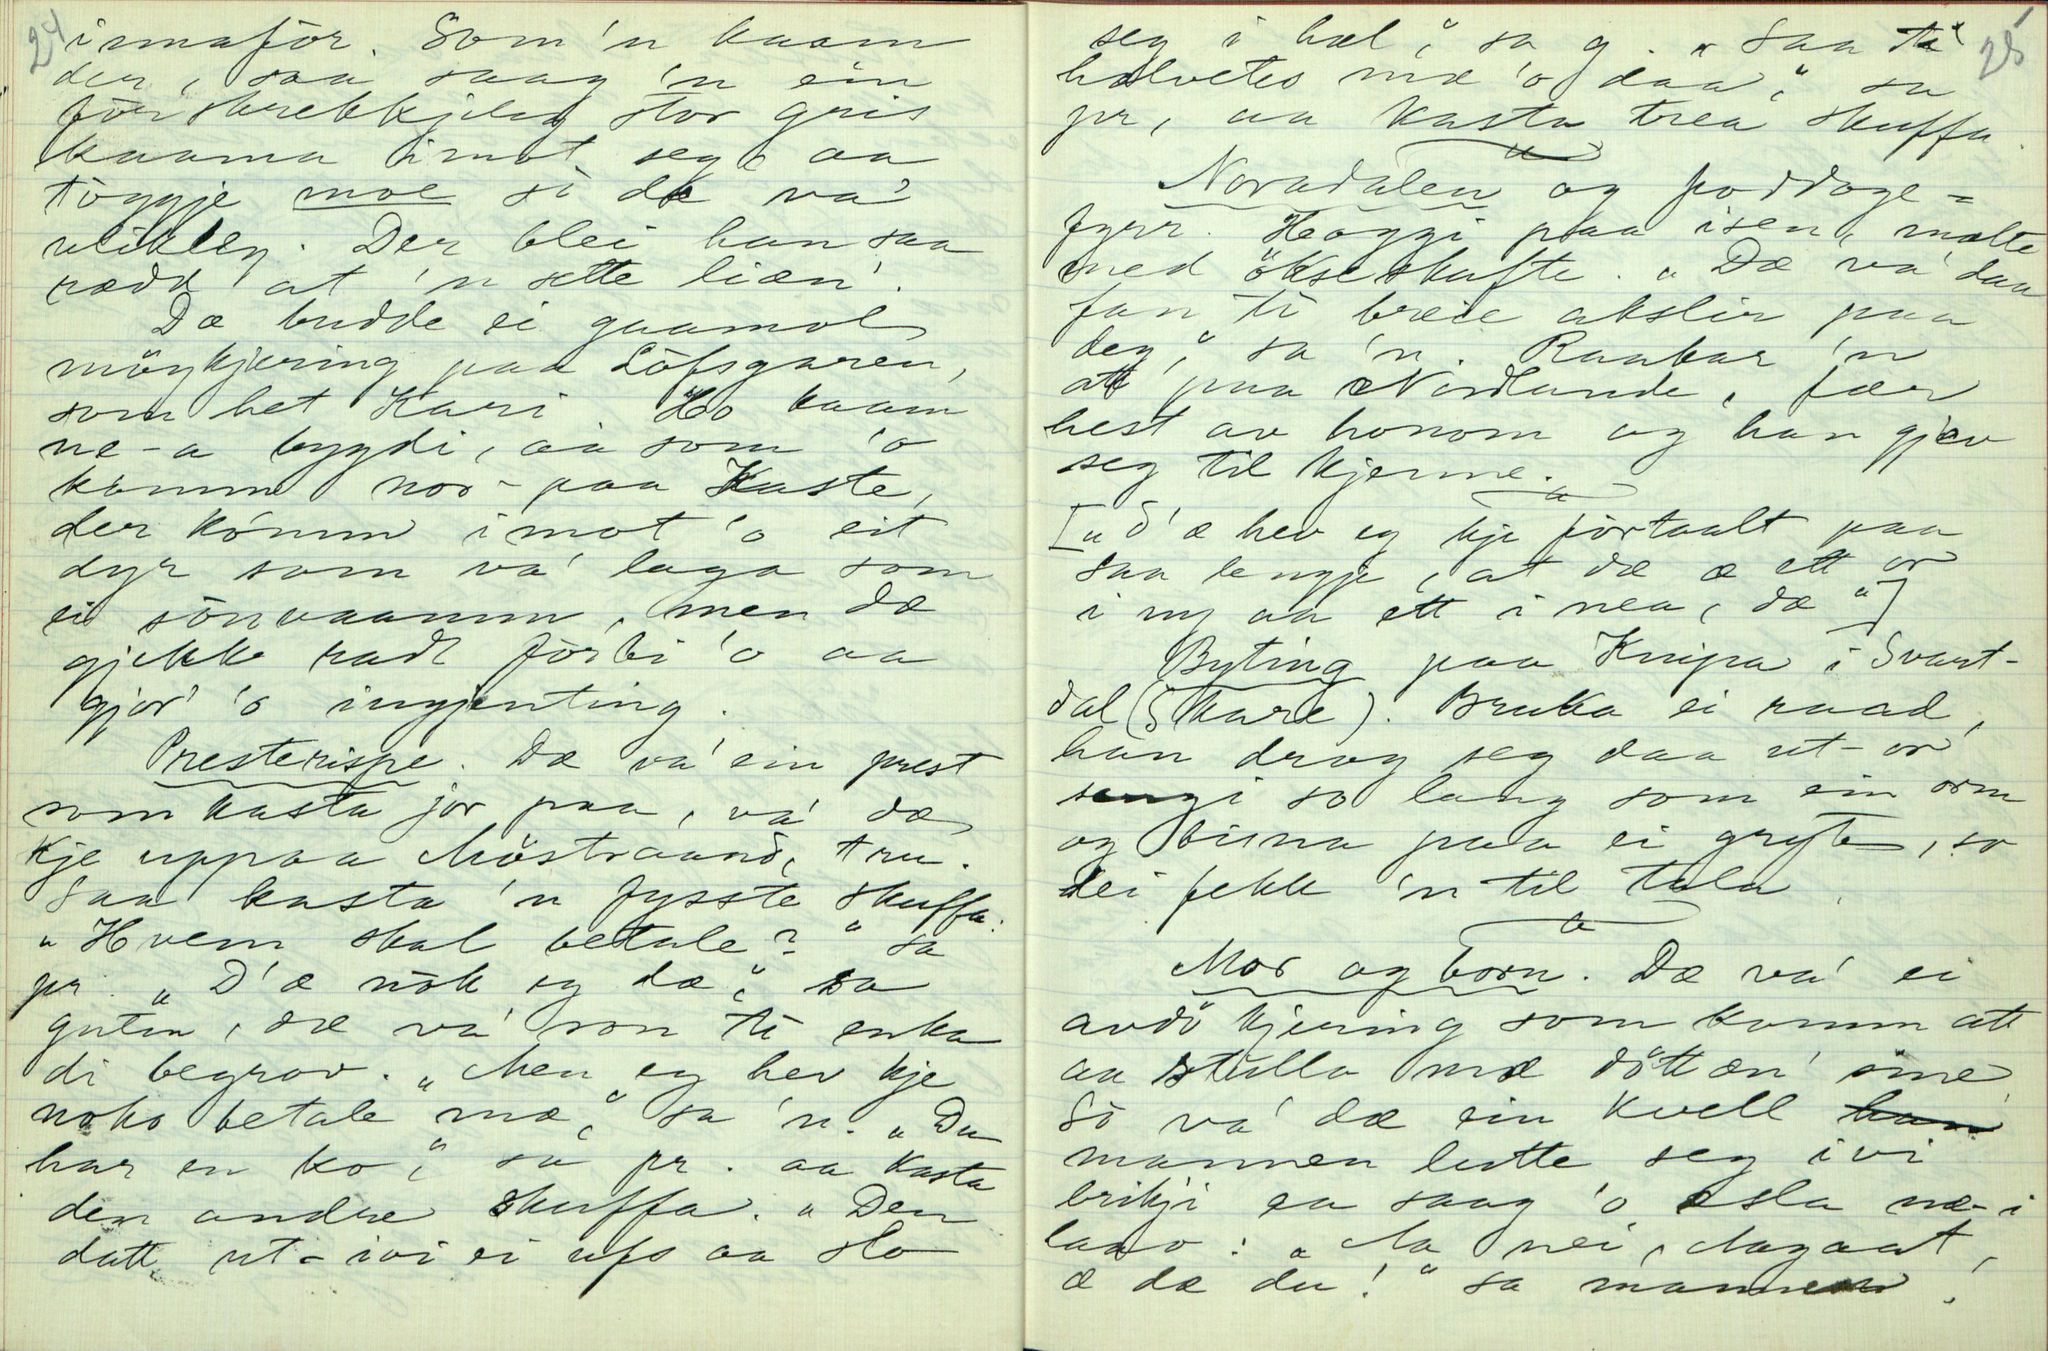 24
imaför. Som 'n kaam
der, saa saag 'n ein
förskrekkjeleg stor gris
kaama imot seg aa
töggje moe so dæ va'
ulikleg. Der blei han saa
rædd at 'n sette liæn'.
Dæ budde ei gaamol
möykjæring paa Löfsgaren,
som het Kari Ho kaam
ne-a bygdi, aa som 'o
kömm nor-paa Kaste,
der kömm imot 'o eit
dyr som va' laga som
ei sönvaamm, men dæ
gjekk radt förbi 'o aa
gjor' 'o ingjenting.
Presterispe. Dæ va' ein prest
som kasta jor paa, va' dæ
kje uppaa Möstraand, tru.
Saa kasta 'n fysste skuffa.
„Hvem skal betale?“ sa
pr. „D'æ nok eg dæ“, sa
guten, dæ va' son ti enka
di begrov. „Men eg hev kje
noko betale mæ“, sa 'n. „Du
har en ko“, sa pr. aa kasta
den andre skuffa. „Den
datt ut-ivi ei ufs aa slo
25
seg i hæl“, sa g. „Saa ti
helvetes mæ 'o daa“, sa
pr, aa kasta trea skuffa.
Noradalen og poddoge-
fyrr. Höggi paa isen, mælte
med ökseskafte. „Dæ va' daa
fan ti breie akslir paa
deg“, sa 'n. Raakar 'n
att paa Nordlande, fær
hest av honom og han gjev
seg til kjenne.
[„D'æ hev eg kje förtaalt paa
saa lengje, at dæ æ ett or
i ny aa ett i nea, dæ“]
Byting paa Knipa i Svart-
dal (Skare). Bruka ei raad,
han drog seg daa ut-or
sengi so lang som ein orm
og bisna paa ei gryte, so
dei fekk 'n til tala.
Mor og born. Dæ va' ei
avdö kjering som komm att
aa stulla mæ dött'æn' sine
So va' dæ ein kvell
mannen lutte seg ivi
brikji en saag 'o asla næ-i
laav: „Aa nei, Magaat,
æ dæ du!“ sa mannen.